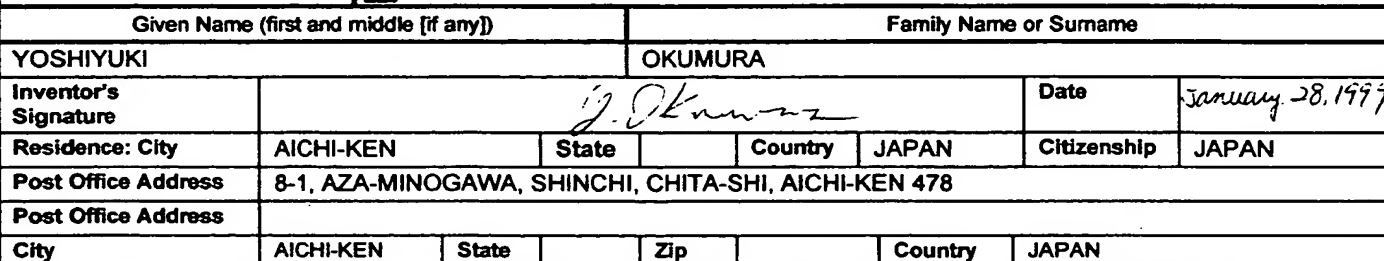 Given Name (first and middle [if any]) Family Name or Surname
YOSHIYUKI OKUMURA
Inventor's Signature Y. Okumura Date January. 28, 1999
Residence: City AICHI-KEN State Country JAPAN Citizenship JAPAN
Post Office Address 8-1, AZA-MINOGAWA, SHINCHI, CHITA-SHI, AICHI-KEN 478
Post Office Address
City AICHI-KEN State Zip Country JAPAN